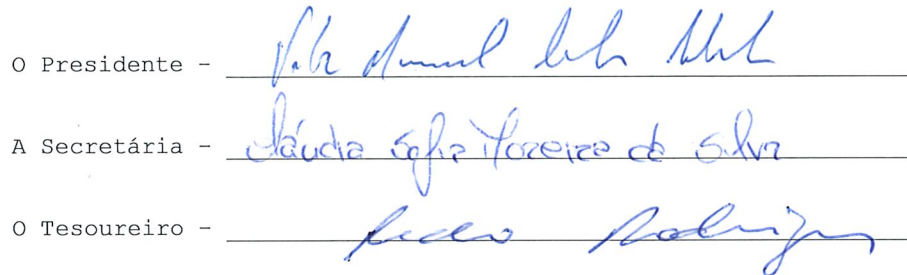 O Presidente - Manuel
A Secretária - Cláudia Sofia Moreira da Silva
O Tesoureiro - Pedro Rodrigues